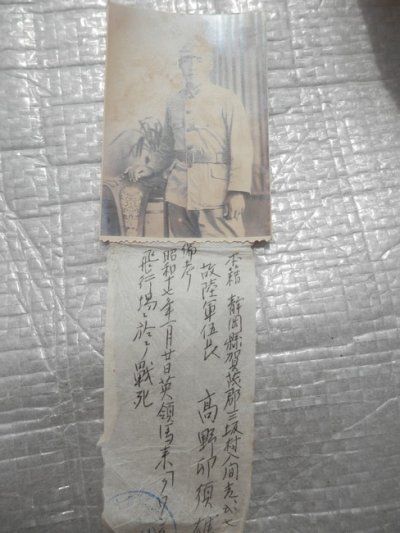 本籍 静岡縣賀茂郡三坂村入間
故陸軍伍長 高野卯須雄
備考
昭和十七年一月廿日英領馬来
飛行場ニ於テ戰死